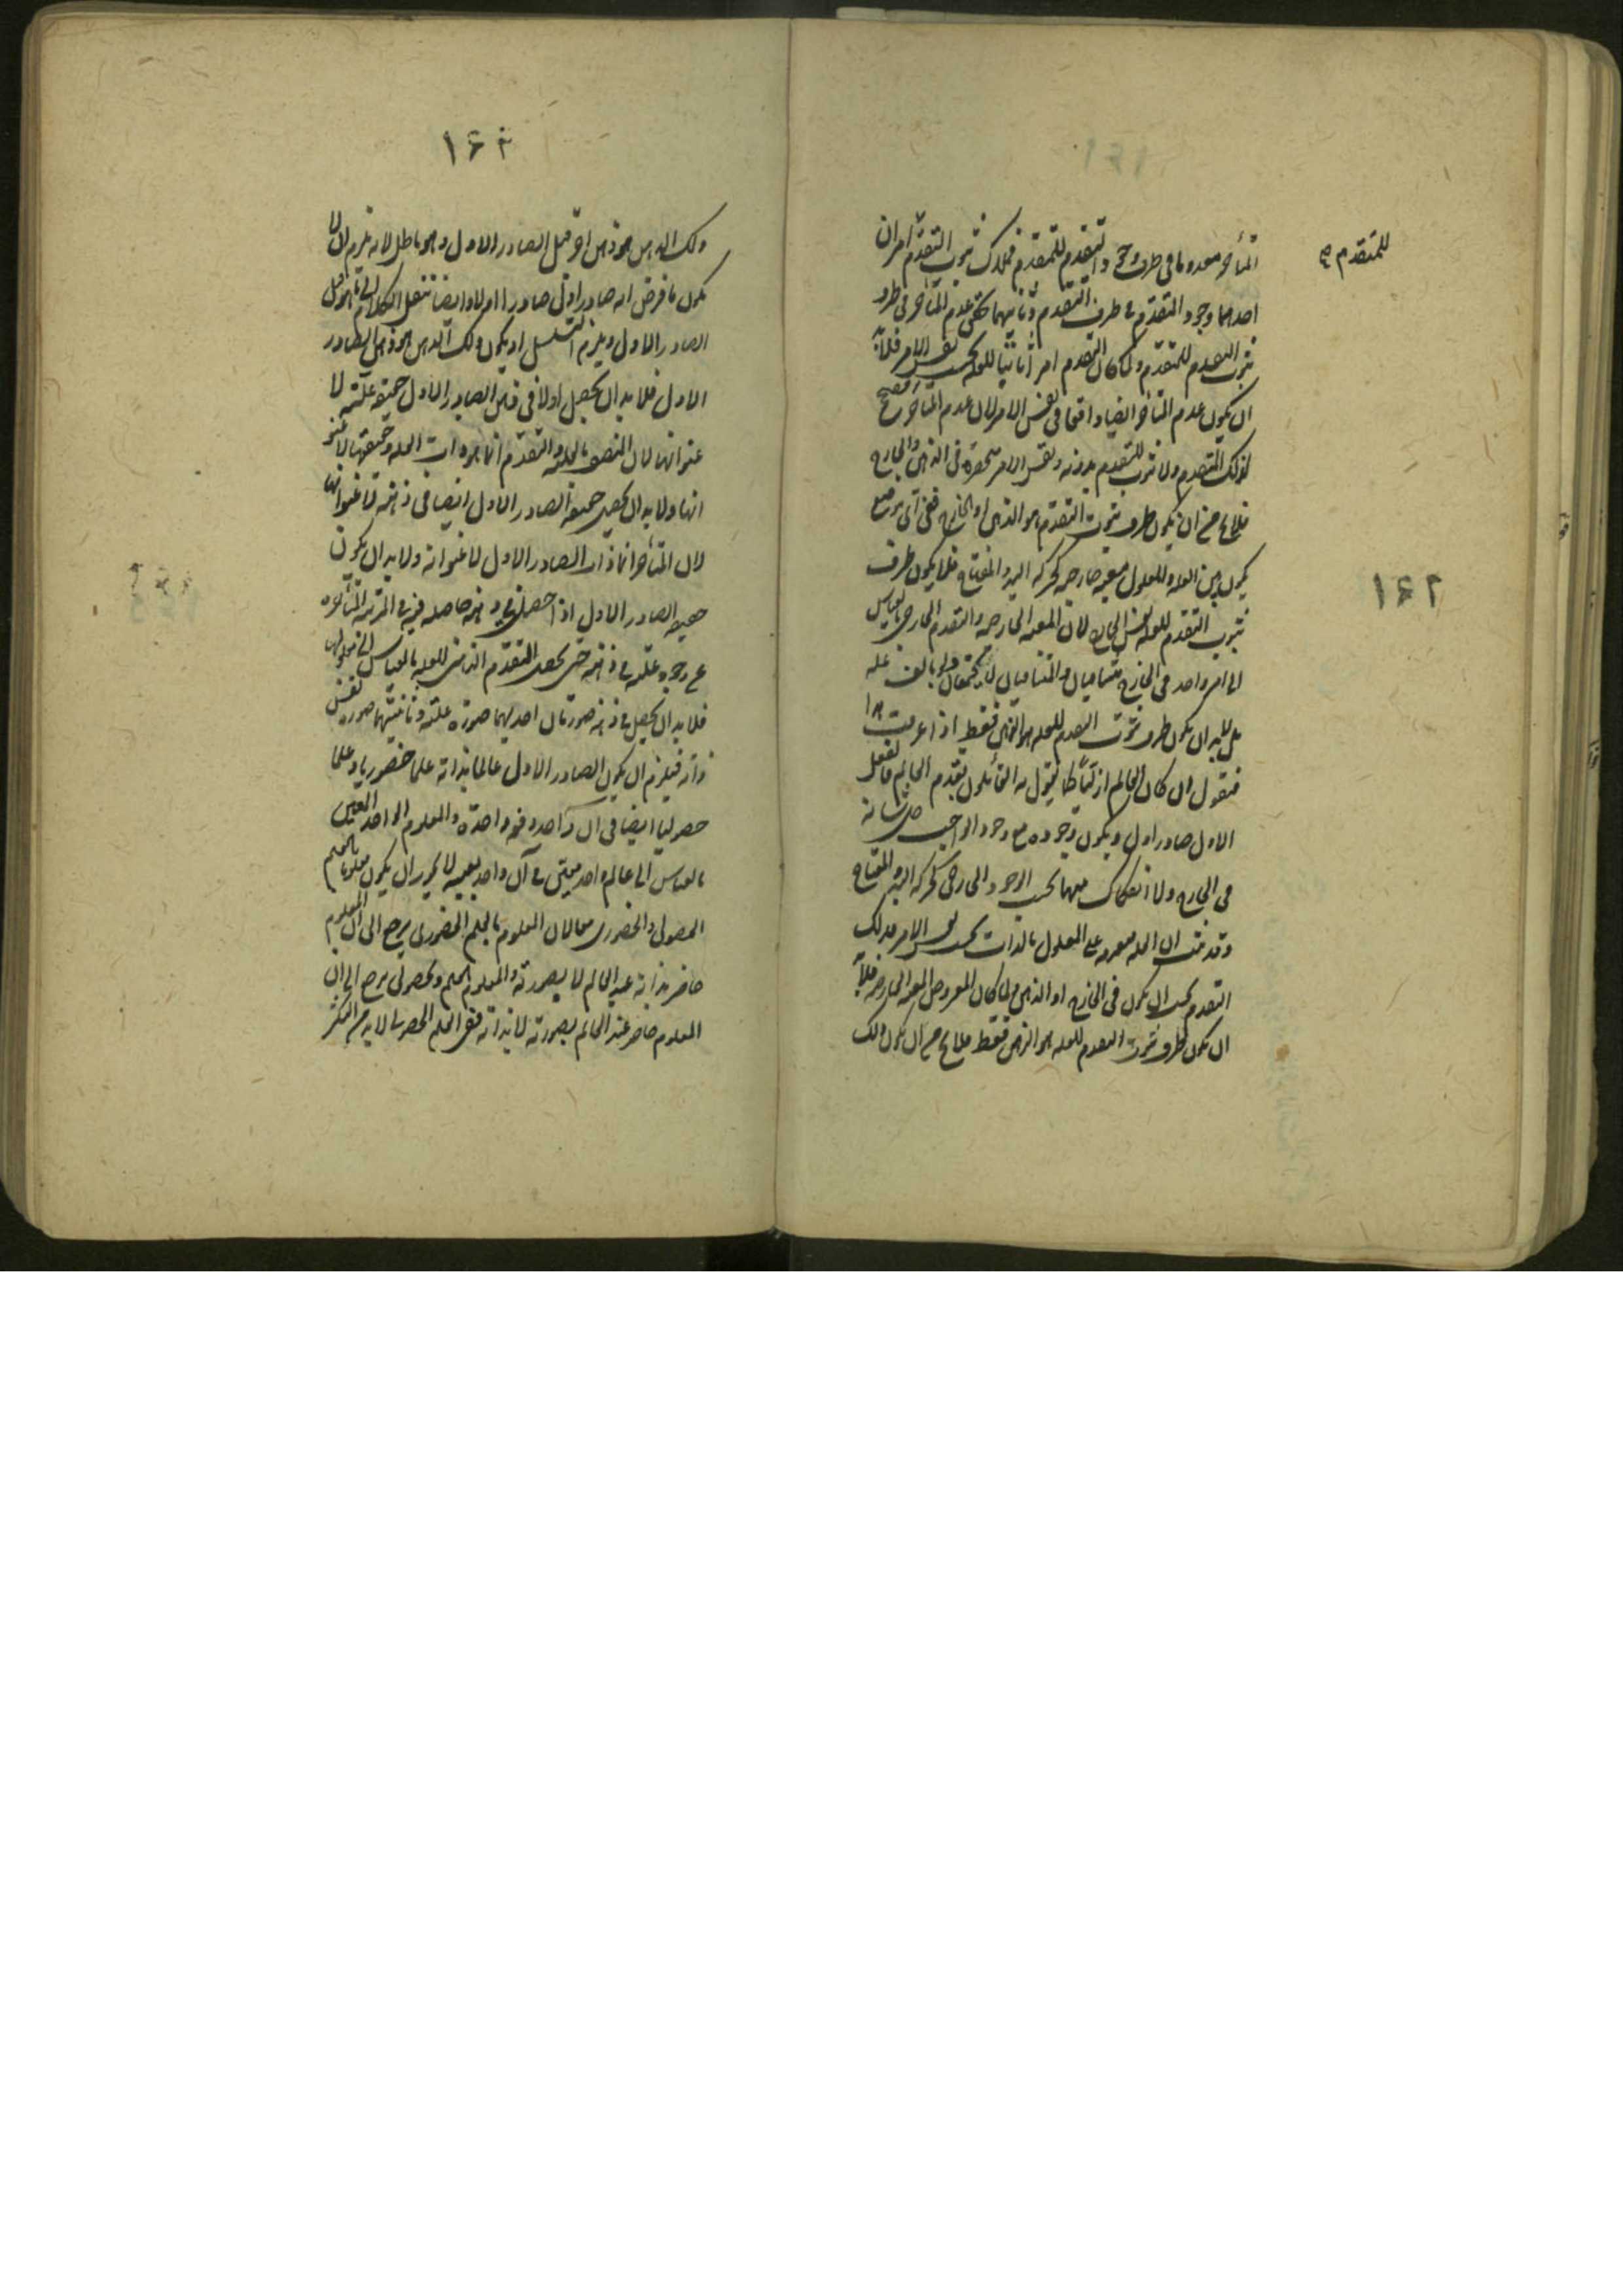 للمتقدم
المتأخر معدوما فى ظرف وجود المتقدم للمتقدم فملاك ثبوت التقدم امران
احدهما وجود المتقدم فى ظرف التقدم وثانيهما تحقق عدم المتأخر فى ظرف
ثبوت التقدم للمتقدم ولما كان التقدم امرا ثابتا للعلة بحسب نفس الامر فلابد
ان يكون عدم المتأخر ايضا واقعا فى نفس الامر لان عدم المتأخر مصحح
لذلك التقدم ولا ثبوت للتقدم بدونه ونفس الامر منحصرة فى الذهن والخارج
فلا يخ من ان يكون ظرف ثبوت التقدم هو الذهن او الخارج ففى أى موضع
يكون بين العلة والمعلول معية خارجية كحركة اليد والمفتاح فلا يكون ظرف
ثبوت التقدم للعلة نفس الخارج لان المعية الخارجية والتقدم الخارجى بالقياس
الى امر واحد فى الخارج متنافيان والمتنافيان لا يجتمعان
بل لابد ان يكون ظرف ثبوت التقدم للعلة هو الذهن فقط اذا عرفت هذا
فنقول ان كان العالم ازليا كما يقول به القائلون بقدم العالم فالعقل
الاول صادر اول ويكون وجوده مع وجود الواجب جل شانه
فى الخارج ولا انفكاك بينهما بحسب الوجود الخارجى كحركة اليد والمفتاح
وقد ثبت ان العلة متقدمة على المعلول بالذات بحسب نفس الامر فذلك
التقدم يجب ان يكون فى الخارج او الذهن ولما كان المفروض المعية الخارجية فلابد
ان يكون ظرف ثبوت التقدم للعلة هو الذهن فقط فلا يخ من ان يكون ذلك
١٤٢
١٤٣
ذلك الذهن هو ذهن اخر قبل الصادر الاول وهو باطل لانه يلزم ان لا
يكون ما فرض انه صادر اول صادرا اولا وايضا ننقل الكلام الى ما هو قبل
الصادر الاول ويلزم التسلسل او يكون ذلك الذهن هو ذهن الصادر
الاول فلابد ان يحصل اولا فى ذهن الصادر الاول حقيقة علته لا
عنوانها لان المتصف بالعلية والتقدم انما هو ذات العلة وحقيقتها لا عنوا
انها ولابد ان يحصل حقيقة الصادر الاول ايضا فى ذهنه لا عنوانها
لان المتأخر انما ذات الصادر الاول لا عنوانه ولابد ان يكون
حقيقة الصادر الاول اذا حصل فى ذهنه حاصلة فيه فى المرتبة المتأخرة
عن وجود علته فى ذهنه حتى يحصل التقدم الذهنى للعلة بالقياس الى معلولها
فلابد ان يحصل فى ذهنه صورتان احديهما صورة علته وثانيتهما صورة نفس
ذاته فيلزم ان يكون الصادر الاول عالما بذاته علما حضوريا وعلما
حصوليا ايضا فى ان واحد ودفعة واحدة والمعلوم الواحد المعين
بالقياس الى عالم واحد معين فى آن واحد بعينه لا يجوز ان يكون معلوما بالعلم
الحصولى والحضورى معا لان المعلوم بالعلم الحضورى يرجع الى ان المعلوم
حاضر بذاته عند العالم لا بصورته والمعلوم بالعلم الحصولى يرجع الى ان
المعلوم حاضر عند العالم بصورته لا بذاته ففى العلم الحصولى لابد من التكثر